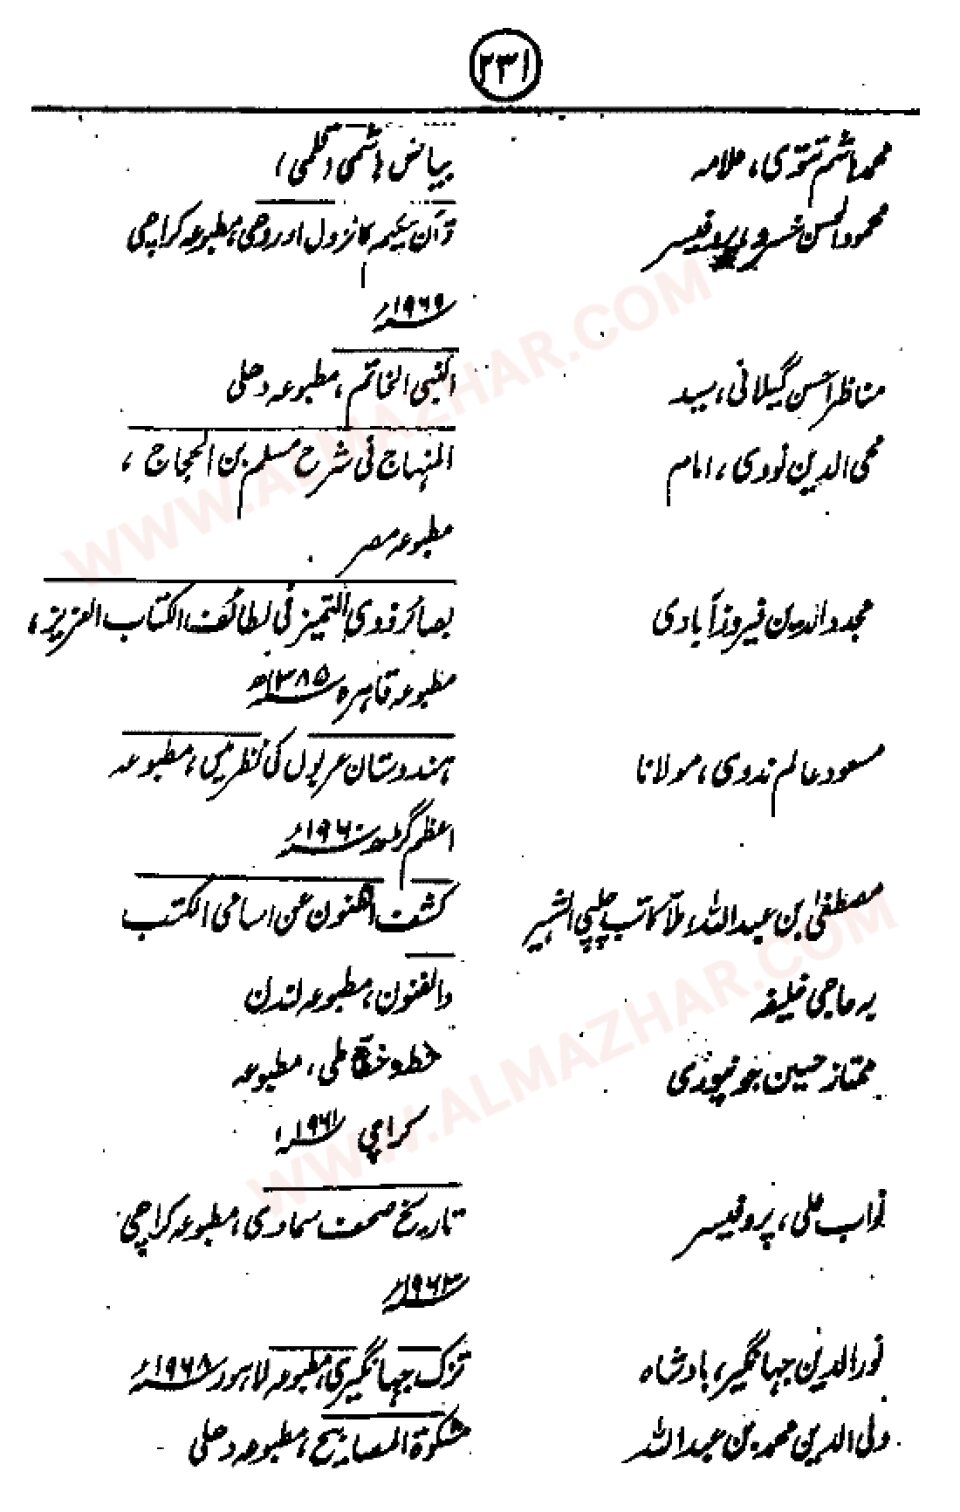 ۲۳۱
محمد ہاشم تتوی، علامہ بیاض ہاشمی (قلمی)
محمود الحسن خسرو، پروفیسر قرآن حکیم کا نزول اور وحی، مطبوعہ کراچی
۱۹۶۹ء
مناظر احسن گیلانی، سید النبی الخاتم، مطبوعہ دہلی
محی الدین نووی، امام المنہاج فی شرح مسلم بن الحجاج،
مطبوعہ مصر
مجدد الدین فیروز آبادی بصائر ذوی التمیز فی لطائف الکتاب العزیز،
مطبوعہ قاہرہ ۱۳۸۵ھ
مسعود عالم ندوی، مولانا ہندوستان عربوں کی نظر میں، مطبوعہ
اعظم گڑھ ۱۹۶۰ء
مصطفیٰ بن عبداللہ ملا کاتب چلپی الشہیر کشف الظنون عن اسامی الکتب
بہ حاجی خلیفہ والفنون، مطبوعہ لندن
ممتاز حسین جونپوری خط و خطاطی، مطبوعہ
کراچی ۱۹۶۱ء
نواب علی، پروفیسر تاریخ صحف سماوی، مطبوعہ کراچی
۱۹۶۳ء
نورالدین جہانگیر، بادشاہ تزک جہانگیری، مطبوعہ لاہور ۱۹۶۸ء
ولی الدین محمد بن عبداللہ مشکوٰۃ المصابیح، مطبوعہ دہلی
WWW.ALMAZHAR.COM
WWW.ALMAZHAR.COM